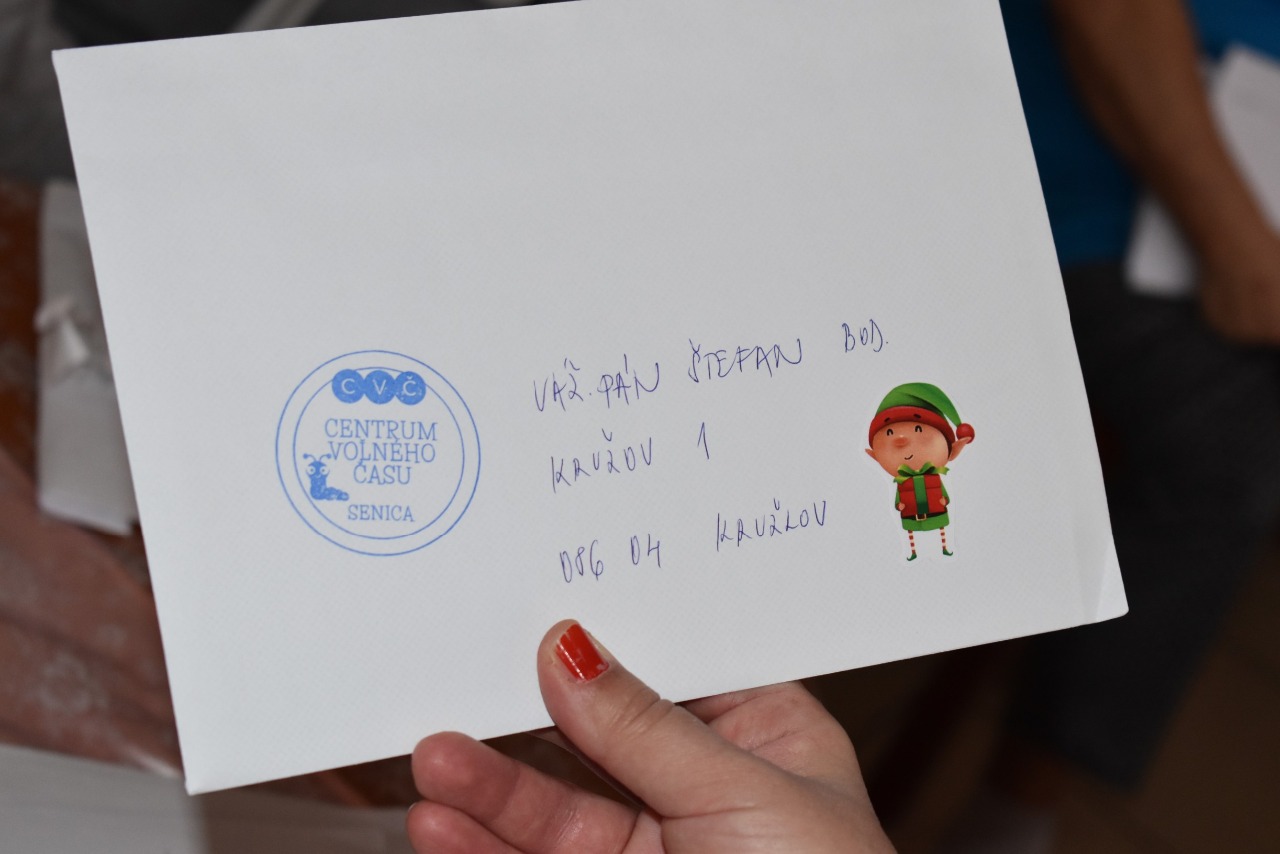 CVČ
CENTRUM
VOĽNÉHO
ČASU
SENICA
VÁŽ. PÁN ŠTEFAN BOD.
KRUŽOV 1
086 04 KRUŽLOV